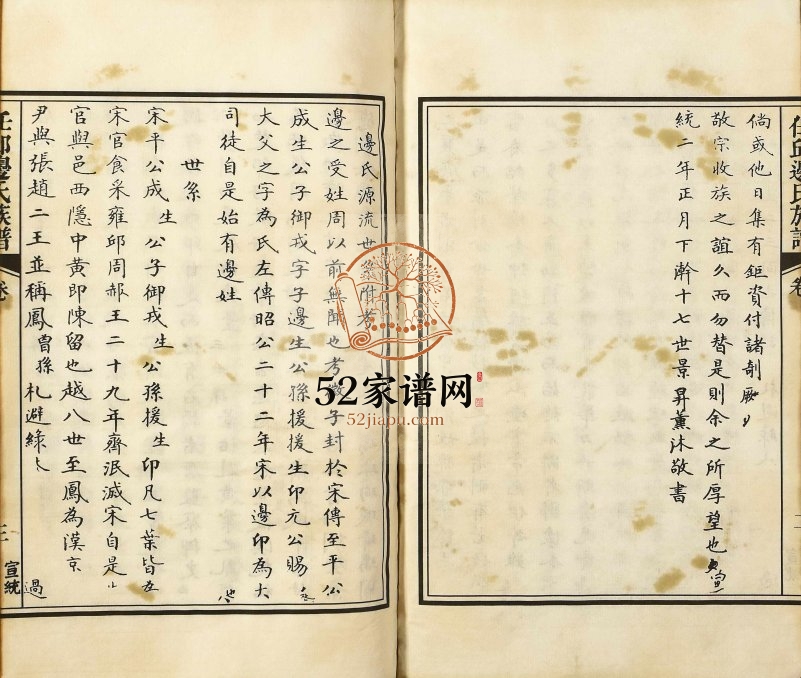 倘或他日集有鉅資付諸剞厥
敬宗收族之誼久而勿替是則余之所厚望也宣
統二年正月下澣十七世景昇薰沐敬書
任邱邊氏族譜
卷
邊氏源流世系附考
邊之受姓周以前無聞也考微子封於宋傳至平公
成生公子御戎字子邊生公孫援援生卬元公賜
大父之字為氏左傳昭公二十二年宋以邊卬為大
司徒自是始有邊姓
世系
宋平公成生 公子御戎生 公孫援生 卬凡七葉皆為
宋官食采雍邱周赧王二十九年齊泯滅宋自是
官與邑西隱中黃即陳留也越八世至鳳為漢京
尹與張趙二王並稱鳳曾孫札避綠 過
任邱邊氏族譜
卷
宣統
52家谱网
52jiapu.com